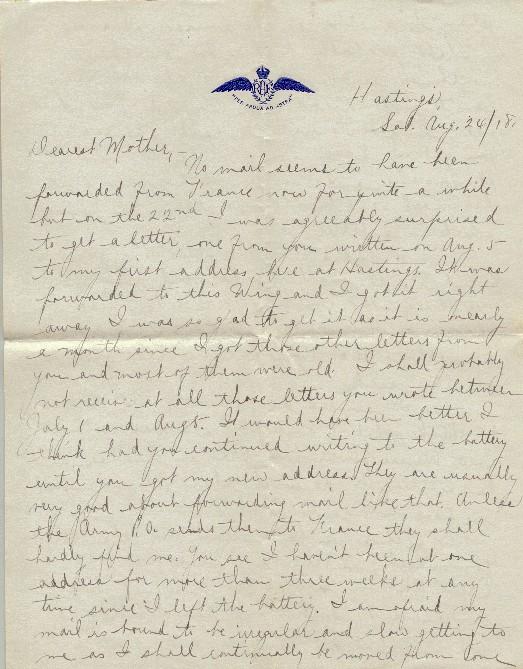 RFC
PER ARDUA AD ASTRA
Hastings,
Sat. Aug. 24/18.
Dearest Mother,-
No mail seems to have been
forwarded from France now for quite a while
but on the 22nd I was agreeably surprised
to get a letter, one from you written on Aug. 5
to my first address here at Hastings. It was
forwarded to this Wing and I got it right
away. I was so glad to get it as it is nearly
a month since I got those other letters from
you and most of them were old. I shall probably
not receive at all those letters you wrote between
July 1 and Aug 5. It would have been better I
think had you continued writing to the battery
until you got my new address. They are usually
very good about forwarding mail like that. Unless
the Army P.O. sends them to France they shall
hardly find me. You see I haven't been at one
address for more than three weeks at any
time since I left the battery. I am afraid my
mail is bound to be irregular and slow getting to
me as I shall continually be moved from one